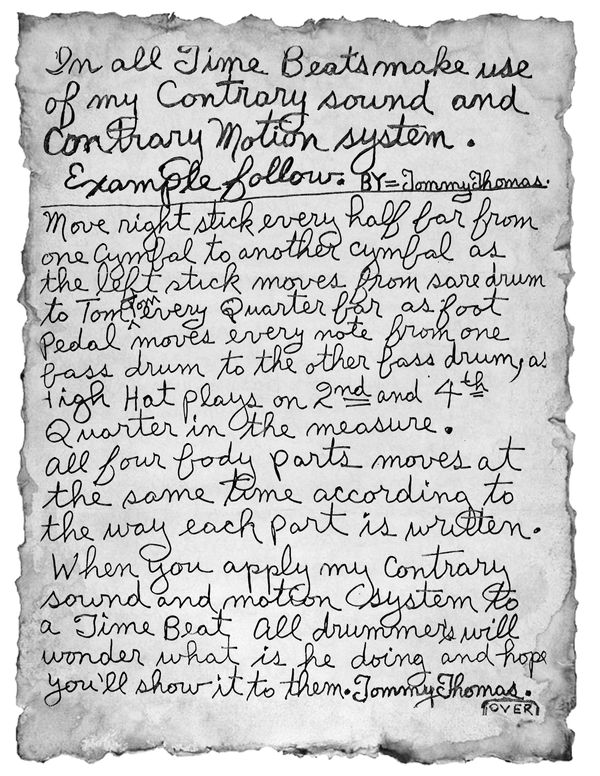 In all Time Beats make use
of my Contrary sound and
Contrary Motion system.
Example follow. BY= Tommy Thomas.
Move right stick every half bar from
one Cymbal to another cymbal as
the left stick moves from sare drum
to Tom Tom every Quarter bar as foot
Pedal moves every note from one
bass drum to the other bass drum, as
High Hat plays on 2nd and 4th
Quarter in the measure.
all four body parts moves at
the same time according to
the way each part is written.
When you apply my Contrary
sound and motion system to
a Time Beat All drummers will
wonder what is he doing and hope
you'll show it to them. Tommy Thomas.
OVER